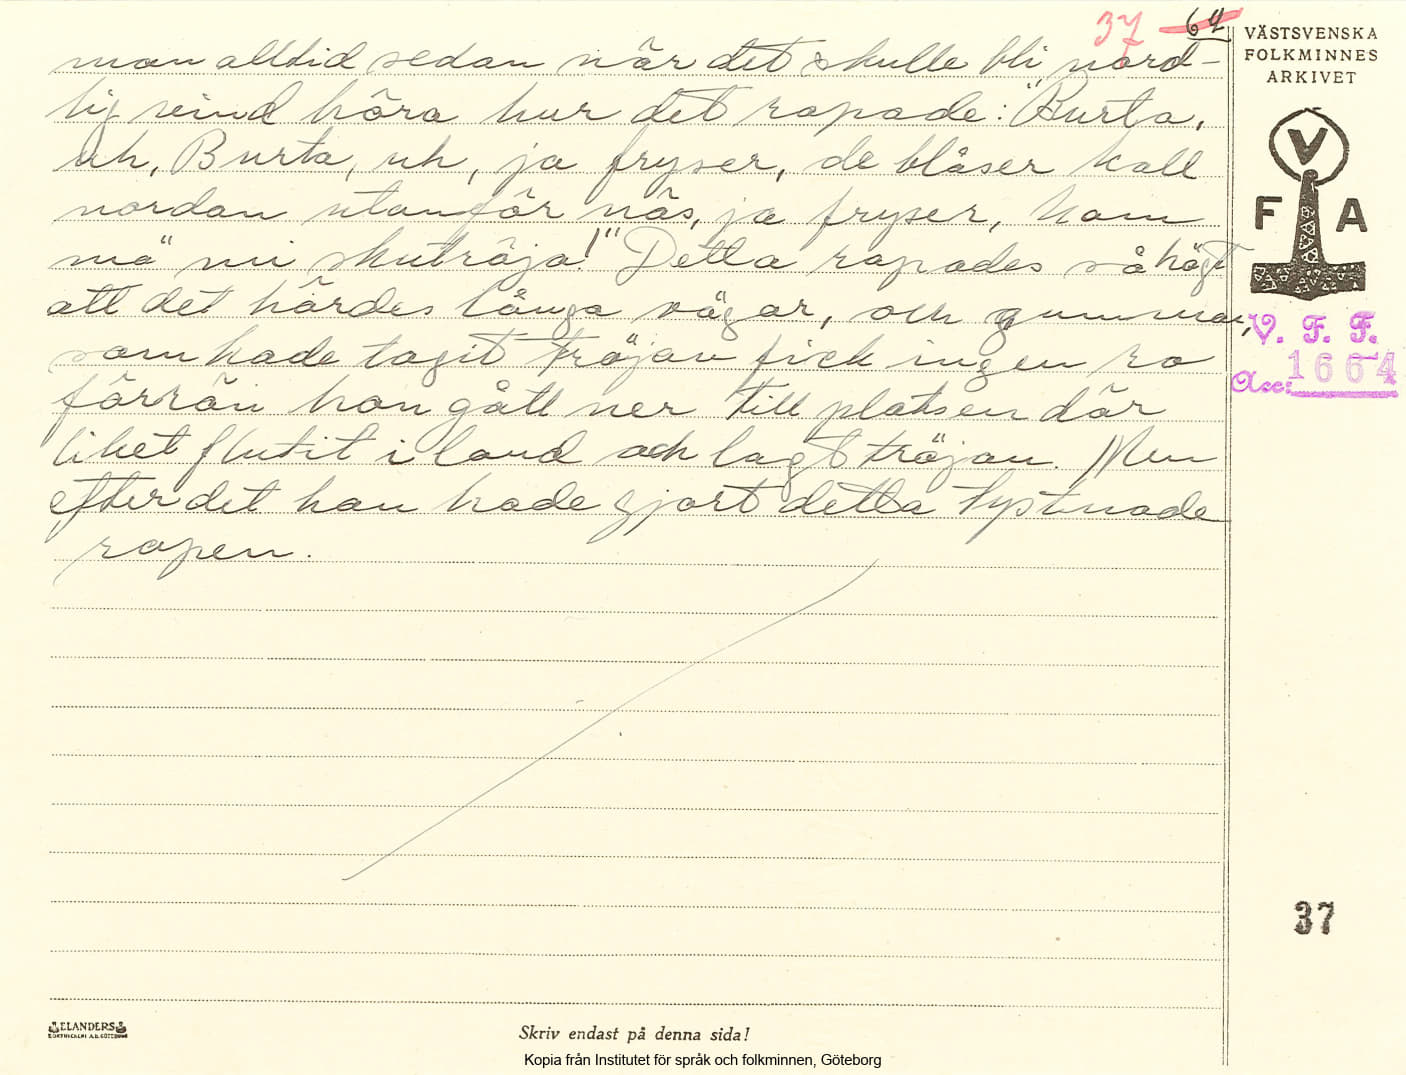 37 64
man alltid sedan när det skulle bli nord-
lig vind höra hur det ropade: "Burta,
uh, Burta, uh, ja fryser, de blåser kall
nordan utanför näs, ja fryser, kom
mä mi skutröja!" Detta ropades så högt
att det hördes långa vägar, och gumman,
som hade tagit tröjan fick ingen ro
förrän hon gått ner till platsen där
liket flutit i land och lagt tröjan. Men
efter det hon hade gjort detta tystnade
ropen.
VÄSTSVENSKA
FOLKMINNES
ARKIVET
V
F A
V. F. F.
Acc: 1664
37
ELANDERS
Skriv endast på denna sida!
Kopia från Institutet för språk och folkminnen, Göteborg